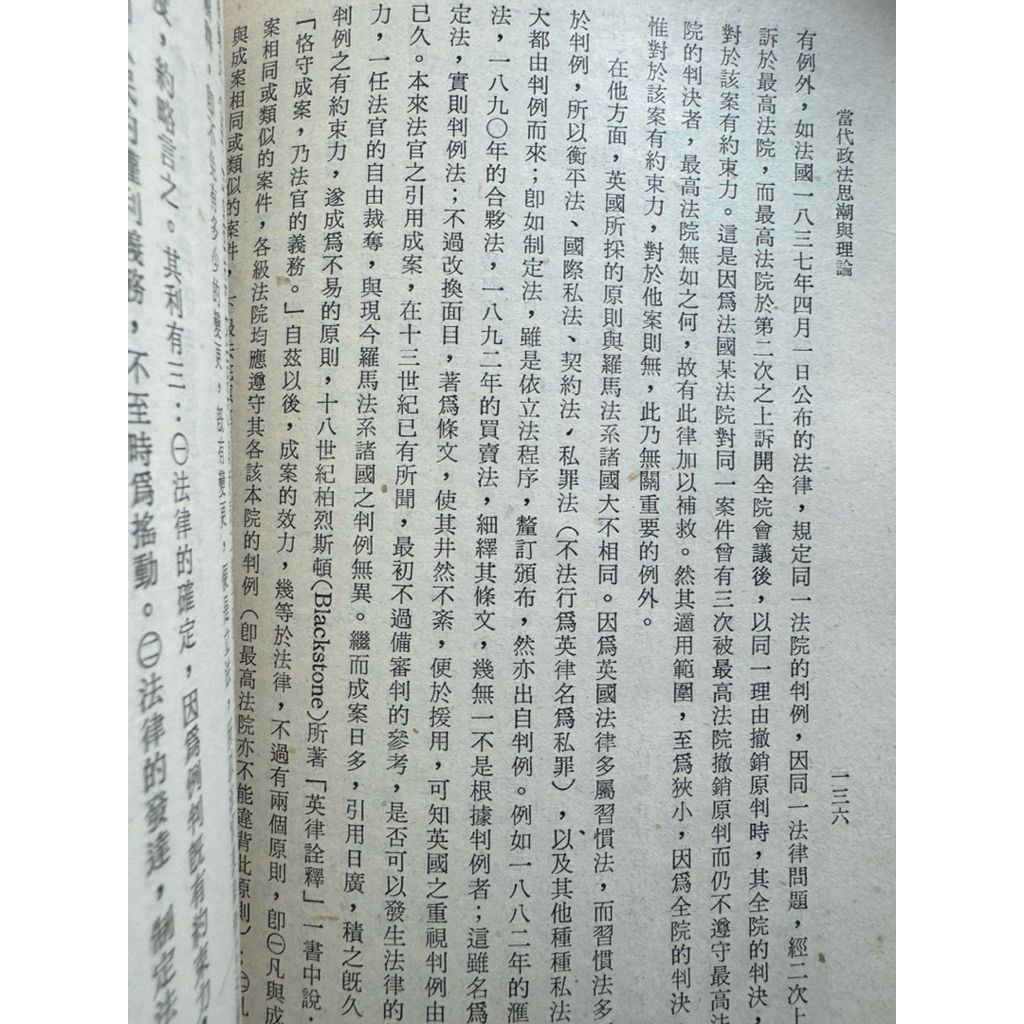 當代政法思潮與理論
一三六
有例外，如法國一八三七年四月一日公布的法律，規定同一法院的判例，因同一法律問題，經二次上
訴於最高法院，而最高法院於第二次之上訴開全院會議後，以同一理由撤銷原判時，其全院的判決，
對於該案有約束力。這是因爲法國某法院對同一案件曾有三次被最高法院撤銷原判而仍不遵守最高法
院的判決者，最高法院無如之何，故有此律加以補救。然其適用範圍，至爲狹小，因爲全院的判決
惟對於該案有約束力，對於他案則無，此乃無關重要的例外。
在他方面，英國所採的原則與羅馬法系諸國大不相同。因爲英國法律多屬習慣法，而習慣法多
於判例，所以衡平法、國際私法、契約法、私罪法（不法行爲英律名爲私罪），以及其他種種私法
大都由判例而來；卽如制定法，雖是依立法程序，釐訂頒布，然亦出自判例。例如一八八二年的滙
法，一八九〇年的合夥法，一八九二年的買賣法，細繹其條文，幾無一不是根據判例者；這雖名爲
定法，實則判例法；不過改換面目，著爲條文，使其井然不紊，便於援用，可知英國之重視判例由
已久。本來法官之引用成案，在十三世紀已有所聞，最初不過備審判的參考，是否可以發生法律的
力，一任法官的自由裁奪，與現今羅馬法系諸國之判例無異。繼而成案日多，引用日廣，積之旣久
判例之有約束力，遂成爲不易的原則，十八世紀柏烈斯頓(Blackstone)所著「英律詮釋」一書中說：
「恪守成案，乃法官的義務。」自茲以後，成案的效力，幾等於法律，不過有兩個原則，卽㊀凡與成
案相同或類似的案件，各級法院均應遵守其各該本院的判例（卽最高法院亦不能違背此原則）；㊁
與成案相同或類似的案件，
，約略言之。其利有三：㊀法律的確定，因爲例判旣有約束力
權利義務，不至時爲搖動。㊁法律的發達，制定法